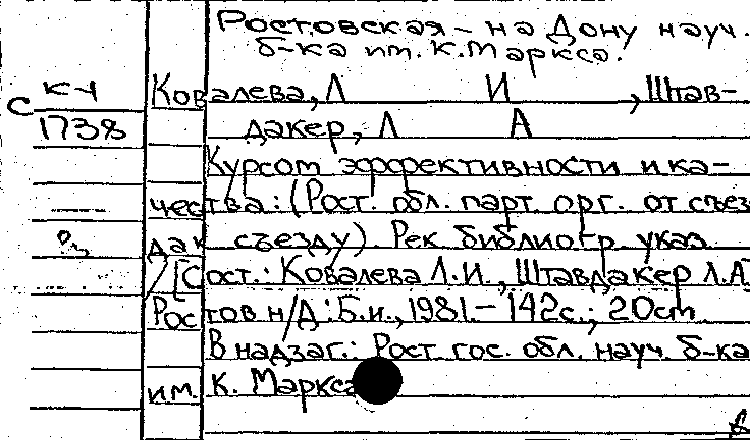 Ростовская-на Дону науч.
б-ка им. К.Маркса.
К4
С Ковалева, Л И , Штав-
1738 дакер, Л А
Курсом эффективности и ка-
чества: (Рост. обл. парт. орг. от съез
да к съезду). Рек. библиогр. указ.
/ [Сост.: Ковалева Л.И., Штавдакер Л.А
Ростов н/Д: Б.и., 1981.- 142с.; 20см.
В надзаг.: Рост. гос. обл. науч. б-ка
им. К. Маркса